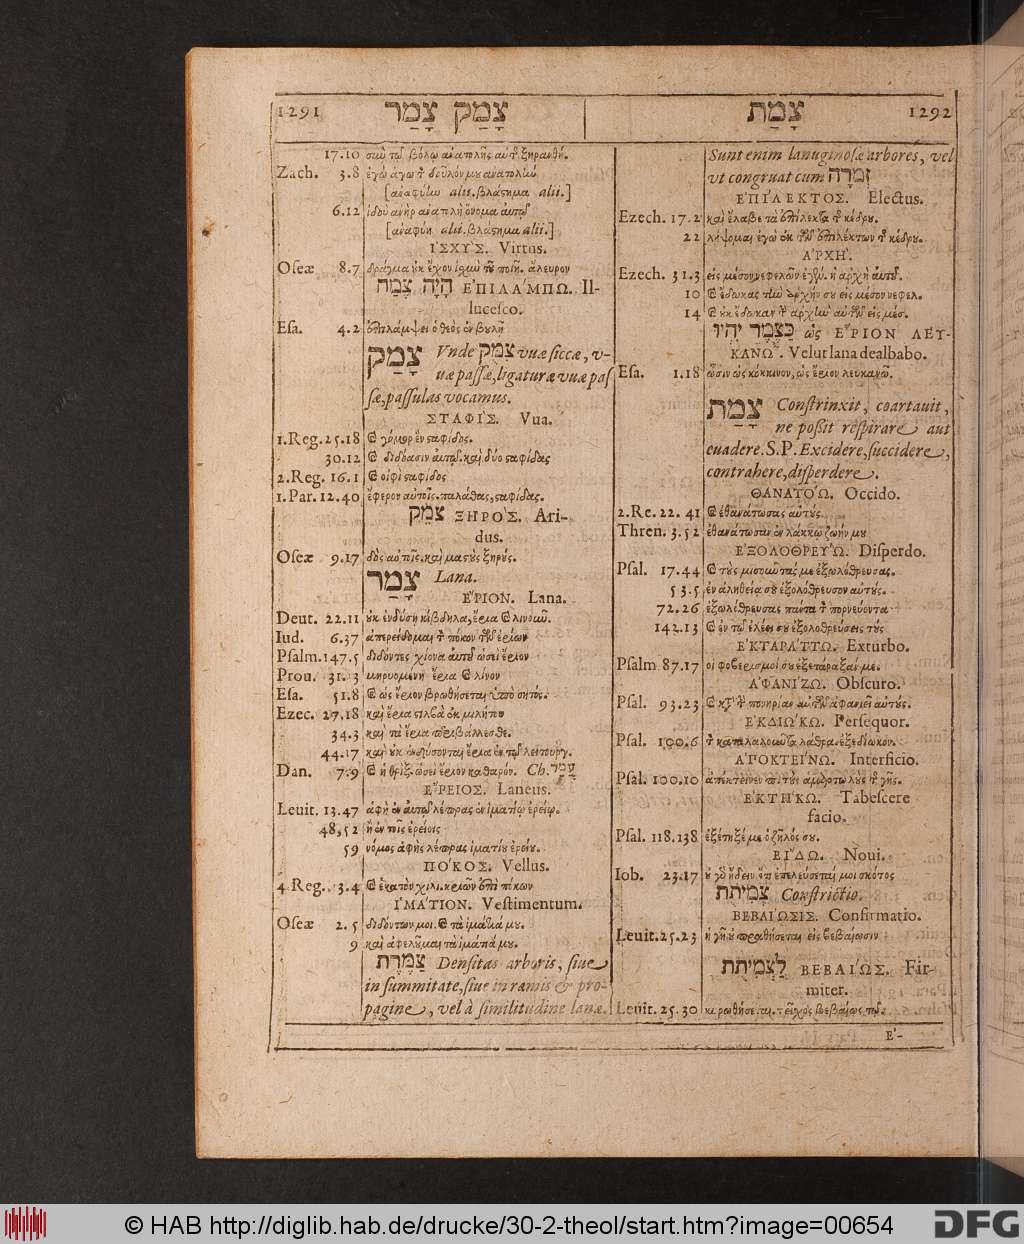 1291 צָמַק צָמַר
צָמַת 1292
17.10 ξηρανθή.
Zach. 3.8 ἐγὼ ἄγω τ δοῦλόν μου ἀνατολίω
[ἀναφύω alii. βλάστημα alii.]
6.12 ἰδοὺ ἀνὴρ ἀνατολὴ ὄνομα αὐτῷ
[ἀναφύη alii. βλάστημα alii.]
ἸΣΧΥΣ. Virtus.
Oseæ 8.7 δράγμα οὐκ ἔχον ἰσχὺν τοῦ ποιῆ. ἄλευρον
הָיָה צֶמַח ἘΠΙΛΑΜΠΩ. Il-
lucesco.
Esa. 4.2 ἐπιλάμψει ὁ θεὸς ἐν βουλῆ
צָמַק Vnde צִמֻּק vuæ siccæ, v-
uæ passæ, ligaturæ vuæ pas
sæ, passulas vocamus.
ΣΤΑΦΙΣ. Vua.
1.Reg.25.18 γόμορ ἓν σταφίδος.
30.12 διδόασιν αὐτῷ. καὶ δύο σταφίδας
2.Reg. 16.1 οἰφὶ σταφίδος
1.Par. 12.40 ἔφερον αὐτοῖς. παλάθας, σταφίδας.
צֹמֵק ΞΗΡΟΣ. Ari-
dus.
Oseæ 9.17 δὸς αὐτοῖς. καὶ μαστοὺς ξηρούς.
צָמַר Lana.
ἘΡΙΟΝ. Lana.
Deut. 22.11 οὐκ ἐνδύσῃ κίβδηλα, ἔρια λίνον.
Iud. 6.37 ἀπερείδομαι τ πόκον τῶν ἐρίων
Psalm.147.5 διδόντες χίονα αὐτοῦ ὡσεὶ ἔριον
Prou. 31.13 μηρυομένη ἔρια λίνον
Esa. 51.8 ὡς ἔριον βρωθήσεται ὑπὸ σητός.
Ezec. 27.18 καὶ ἔρια στιλβὰ ἐκ μιλήτου
34.3 καὶ τὰ ἔρια περιβάλλεσθε.
44.17 καὶ οὐκ ἐνδύσονται ἔρια ἐν τῷ λειτουργ.
Dan. 7.9 ἡ θρὶξ. ὡσεὶ ἔριον καθαρόν. Ch. עֲמַר
ἘΡΕΙΟΣ. Laneus.
Leuit. 13.47 ἁφὴ ἐν αὐτῷ λέπρας ἐν ἱματίῳ ἐρείῳ.
48,52 ἢ ἐν τοῖς ἐρείοις
59 νόμος ἁφῆς λέπρας ἱματίου ἐρείου.
ΠΟΚΟΣ. Vellus.
4 Reg. 3.4 ἑκατὸν χιλι. κριῶν ἐπὶ πόκων
ἹΜΑΤΙΟΝ. Vestimentum.
Oseæ 2.5 διδόντων μοι. τὰ ἱμάτιά μου.
9 καὶ ἀφελοῦμαι τὰ ἱμάτιά μου.
צַמֶּרֶת Densitas arboris, siue
in summitate, siue in ramis & pro-
pagine, vel à similitudine lanæ.
Sunt enim lanuginosæ arbores, vel
vt congruat cum זְמֹרָה
ἘΠΙΛΕΚΤΟΣ. Electus.
Ezech. 17.2 καὶ ἔλαβε τὰ ἐπίλεκτα τ κέδρου.
22 λήψομαι ἐγὼ ἐκ τῶν ἐπιλέκτων τ κέδρου.
ἈΡΧΗ.
Ezech. 31.3 εἰς μέσον νεφελῶν ἐγέν. ἡ ἀρχὴ αὐτοῦ.
10 ἔδωκας τὴν ἀρχήν σου εἰς μέσον νεφελ.
14 οὐκ ἔδωκαν τ ἀρχὴν αὐτῶν εἰς μέσ.
כַּצֶּמֶר יִהְיוּ ὡς ἜΡΙΟΝ ΛΕΥ-
ΚΑΝΩ. Velut lana dealbabo.
Esa. 1.18 ὦσιν ὡς κόκκινον, ὡς ἔριον λευκανῶ.
צָמַת Constrinxit, coartauit,
ne possit respirare aut
euadere. S.P. Excidere, succidere,
contrahere, disperdere.
ΘΑΝΑΤΟΩ. Occido.
2.Re. 22. 41 ἐθανάτωσας αὐτούς
Thren. 3.52 ἐθανάτωσαν ἐν λάκκῳ ζωήν μου
ἘΞΟΛΟΘΡΕΥΩ. Disperdo.
Psal. 17.44 τοὺς μισοῦντάς με ἐξωλόθρευσας.
53.5 ἐν ἀληθείᾳ σου ἐξολόθρευσον αὐτούς.
72.26 ἐξωλόθρευσας πάντα τ πορνεύοντα
142.13 ἐν τῷ ἐλέει σου ἐξολοθρεύσεις τούς
ἘΚΤΑΡΑΤΤΩ. Exturbo.
Psalm 87.17 οἱ φοβερισμοί σου ἐξετάραξάν με.
ἈΦΑΝΙΖΩ. Obscuro.
Psal. 93.23 κατὰ τ πονηρίαν αὐτῶν ἀφανιεῖ αὐτούς.
ἘΚΔΙΩΚΩ. Persequor.
Psal. 100.6 τ καταλαλοῦντα λάθρα. ἐξεδίωκον.
ἈΠΟΚΤΕΙΝΩ. Interficio.
Psal. 100.10 ἀπέκτεινεν π. τοὺς ἁμαρτωλοὺς τ γῆς.
ἘΚΤΗΚΩ. Tabescere
facio.
Psal. 118.138 ἐξέτηξέ με ὁ ζῆλός σου.
ΕΙΔΩ. Noui.
Iob. 23.17 οὐ γὰρ ᾔδειν ὅτι ἐπελεύσεταί μοι σκότος
צְמִיתֻת Constrictio.
ΒΕΒΑΙΩΣΙΣ. Confirmatio.
Leuit.25.23 ἡ γῆ οὐ πραθήσεται εἰς βεβαίωσιν
לַצְּמִיתֻת ΒΕΒΑΙΩΣ. Fir-
miter.
Leuit. 25.30 κυρωθήσεται. βεβαίως τῷ.
Ε-
© HAB http://diglib.hab.de/drucke/30-2-theol/start.htm?image=00654
DFG